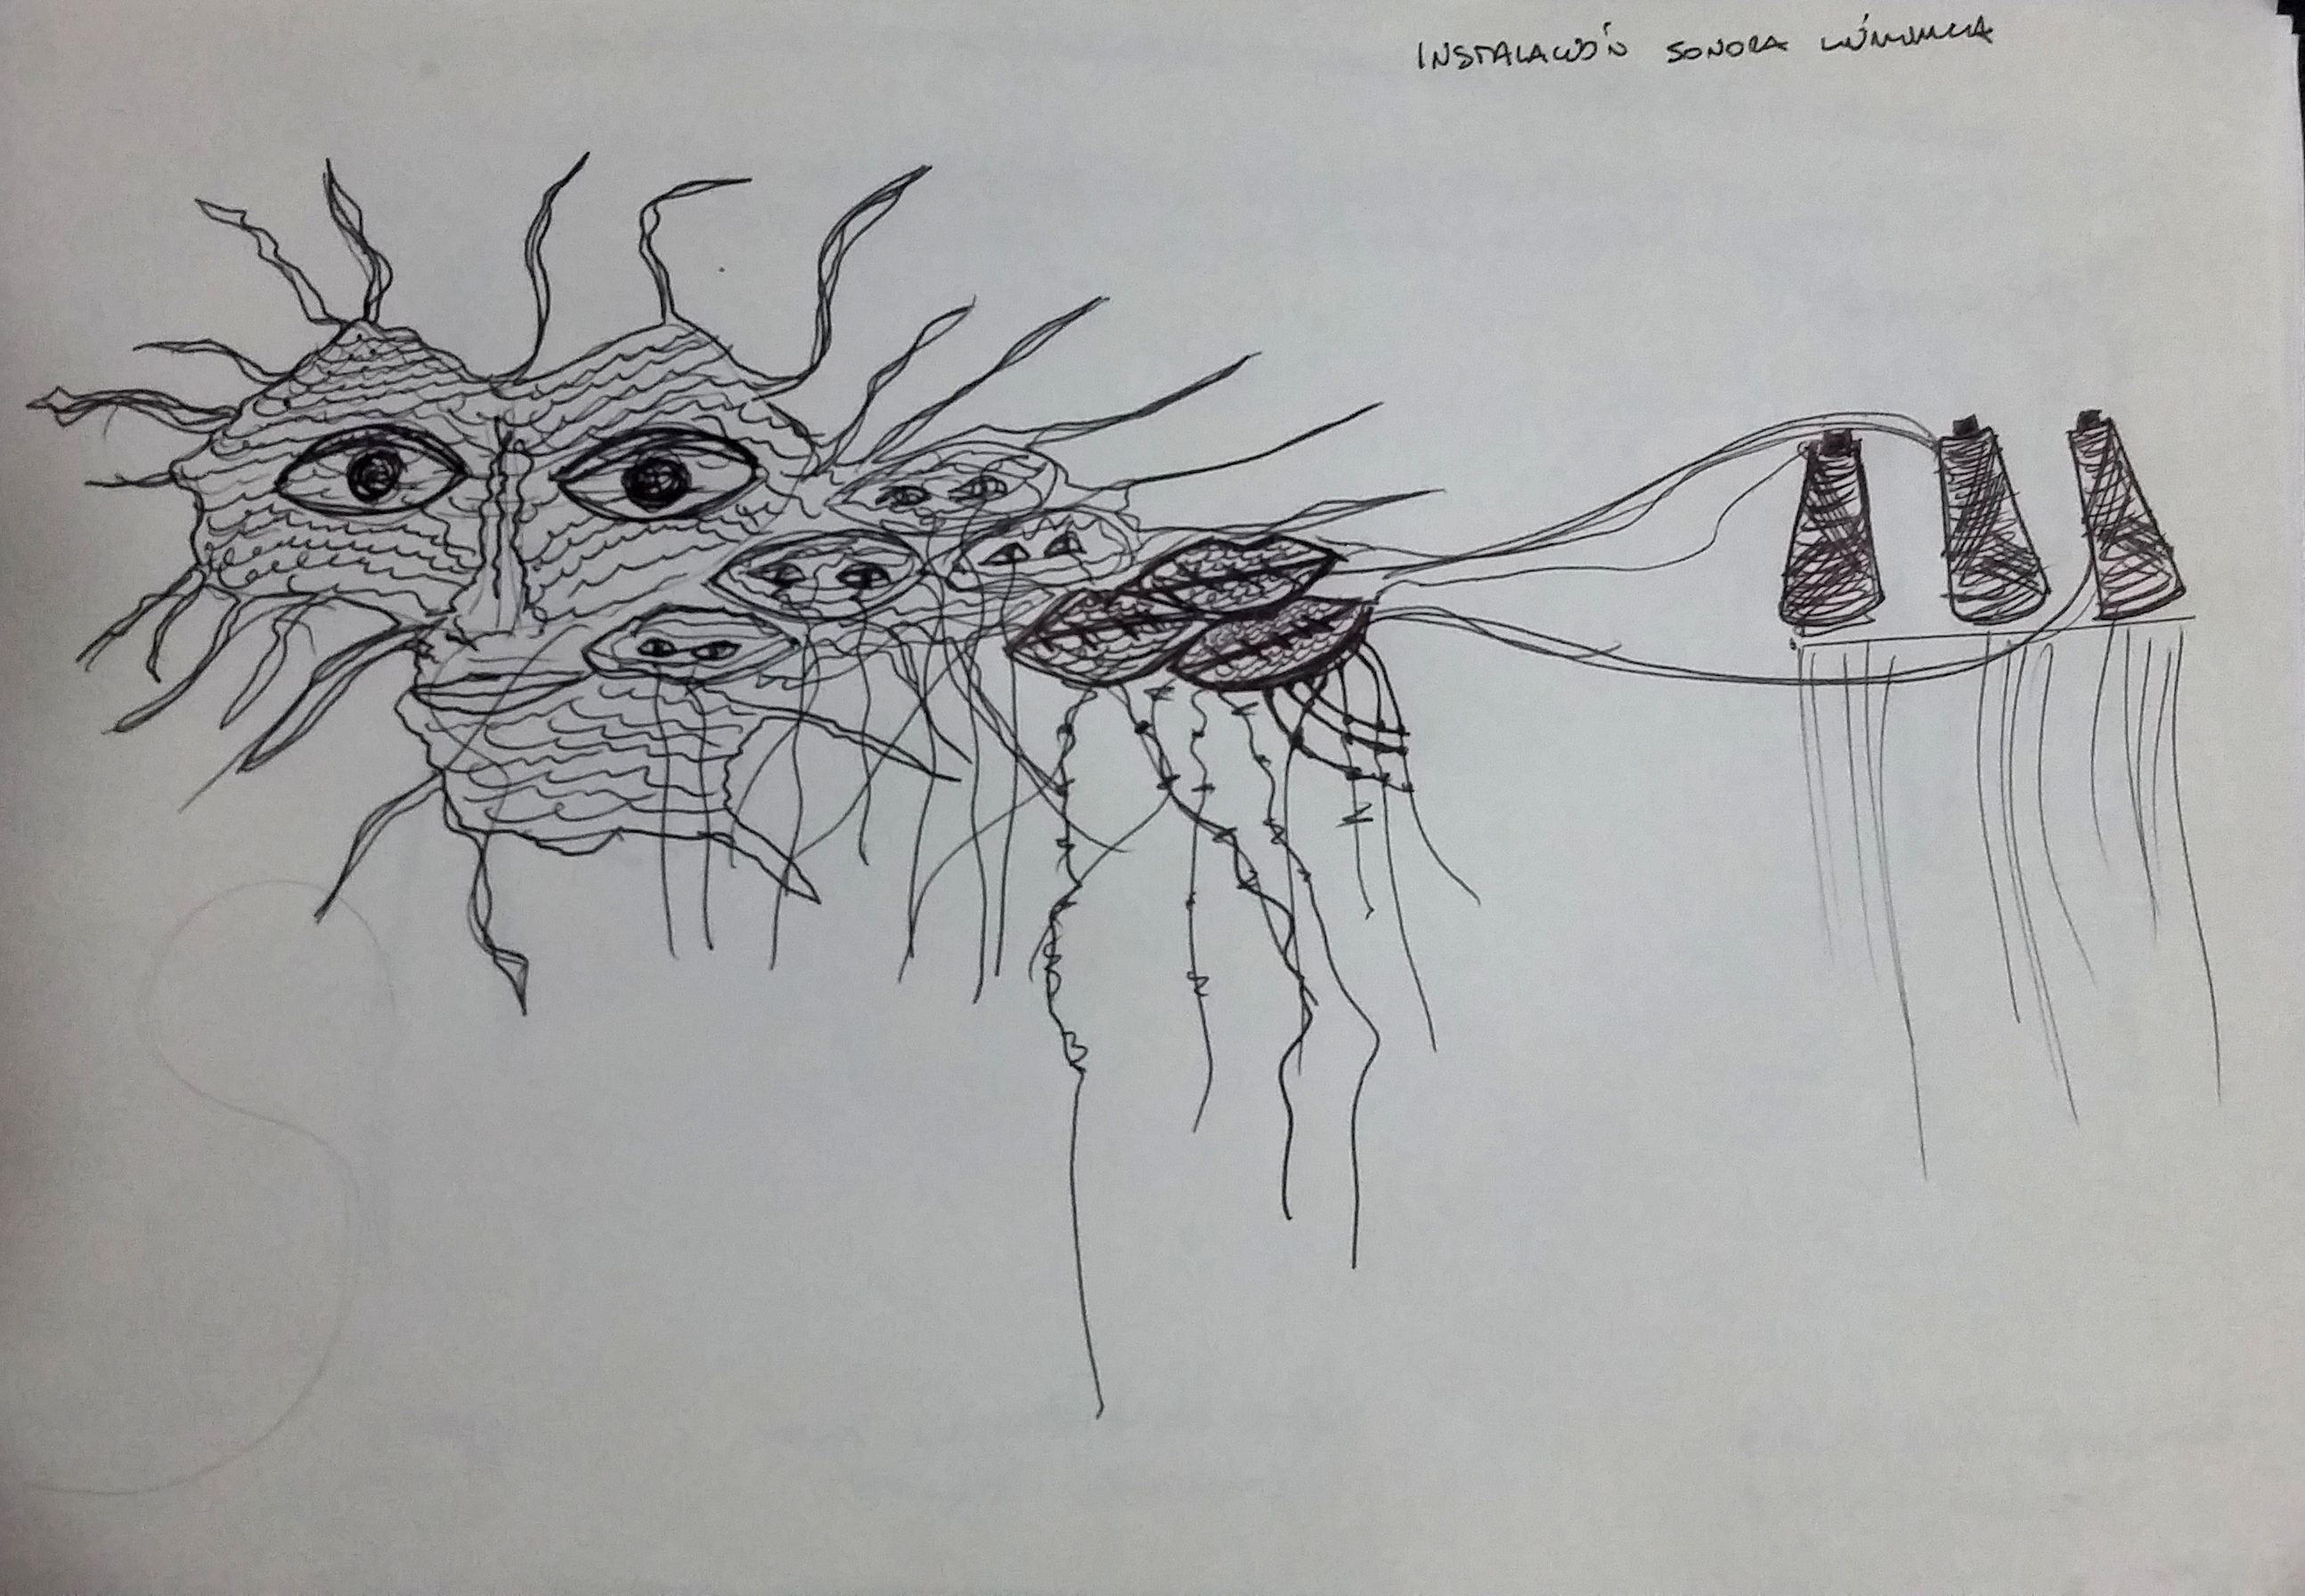 INSTALACIÓN SONORA LUMÍNICA